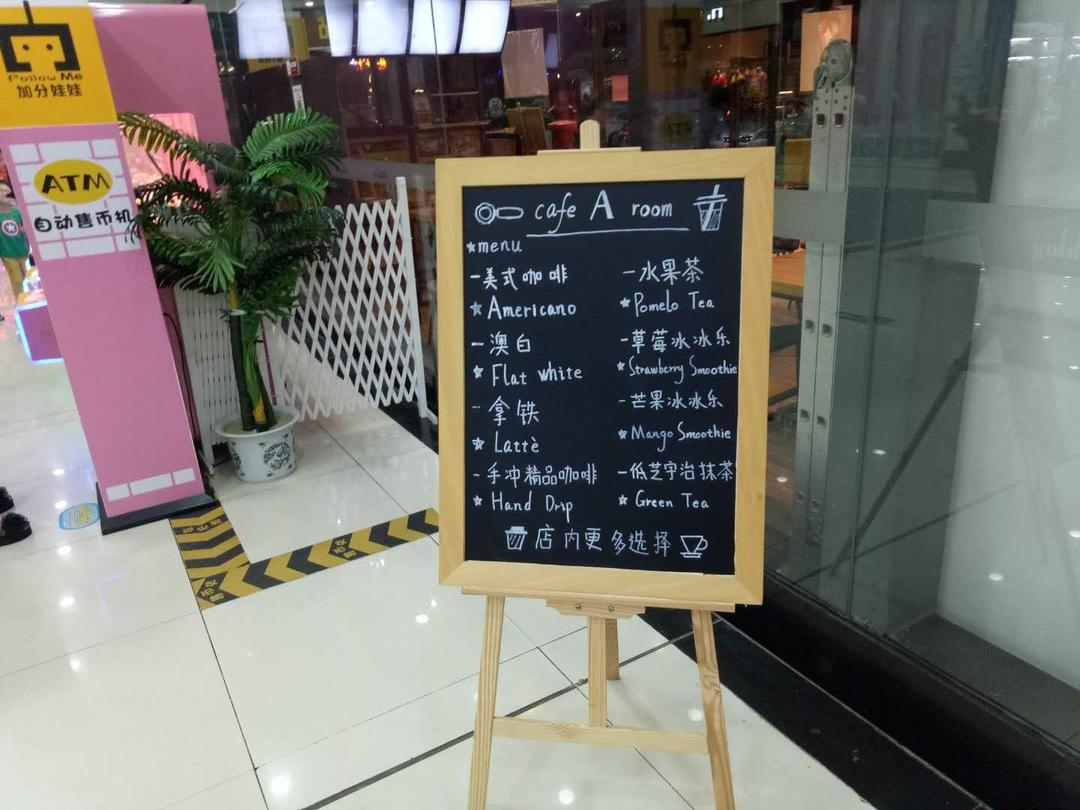 Follow Me
加分娃娃
ATM
自动售币机
cafe A room
menu
-美式咖啡
Americano
-澳白
Flat white
-拿铁
Lattè
-手冲精品咖啡
Hand Drip
-水果茶
Pomelo Tea
-草莓冰冰乐
Strawberry Smoothie
-芒果冰冰乐
Mango Smoothie
-低芝宇治抹茶
Green Tea
店内更多选择